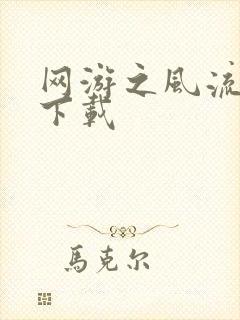 网游之風流
下載
馬克尔